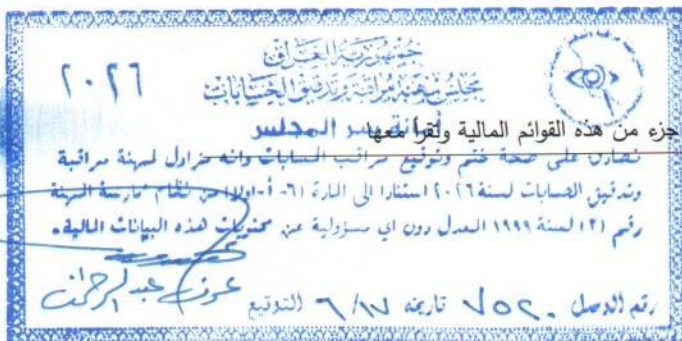 جمهورية العراق
مجلس مهنة مراقبة وتدقيق الحسابات
٢٠٢٦
أمانة سر المجلس
جزء من هذه القوائم المالية وتقرأ معها
نصادق على صحة ختم وتوقيع مراقب الحسابات وانه مزاول لمهنة مراقبة
وتدقيق الحسابات لسنة ٢٠٢٦ استنادا الى المادة (٦-أ-اولا) من نظام ممارسة المهنة
رقم (٣) لسنة ١٩٩٩ المعدل دون اي مسؤولية عن محتويات هذه البيانات المالية.
رقم الوصل ٧٥٢٠ تاريخه ٦/١٧ التوقيع